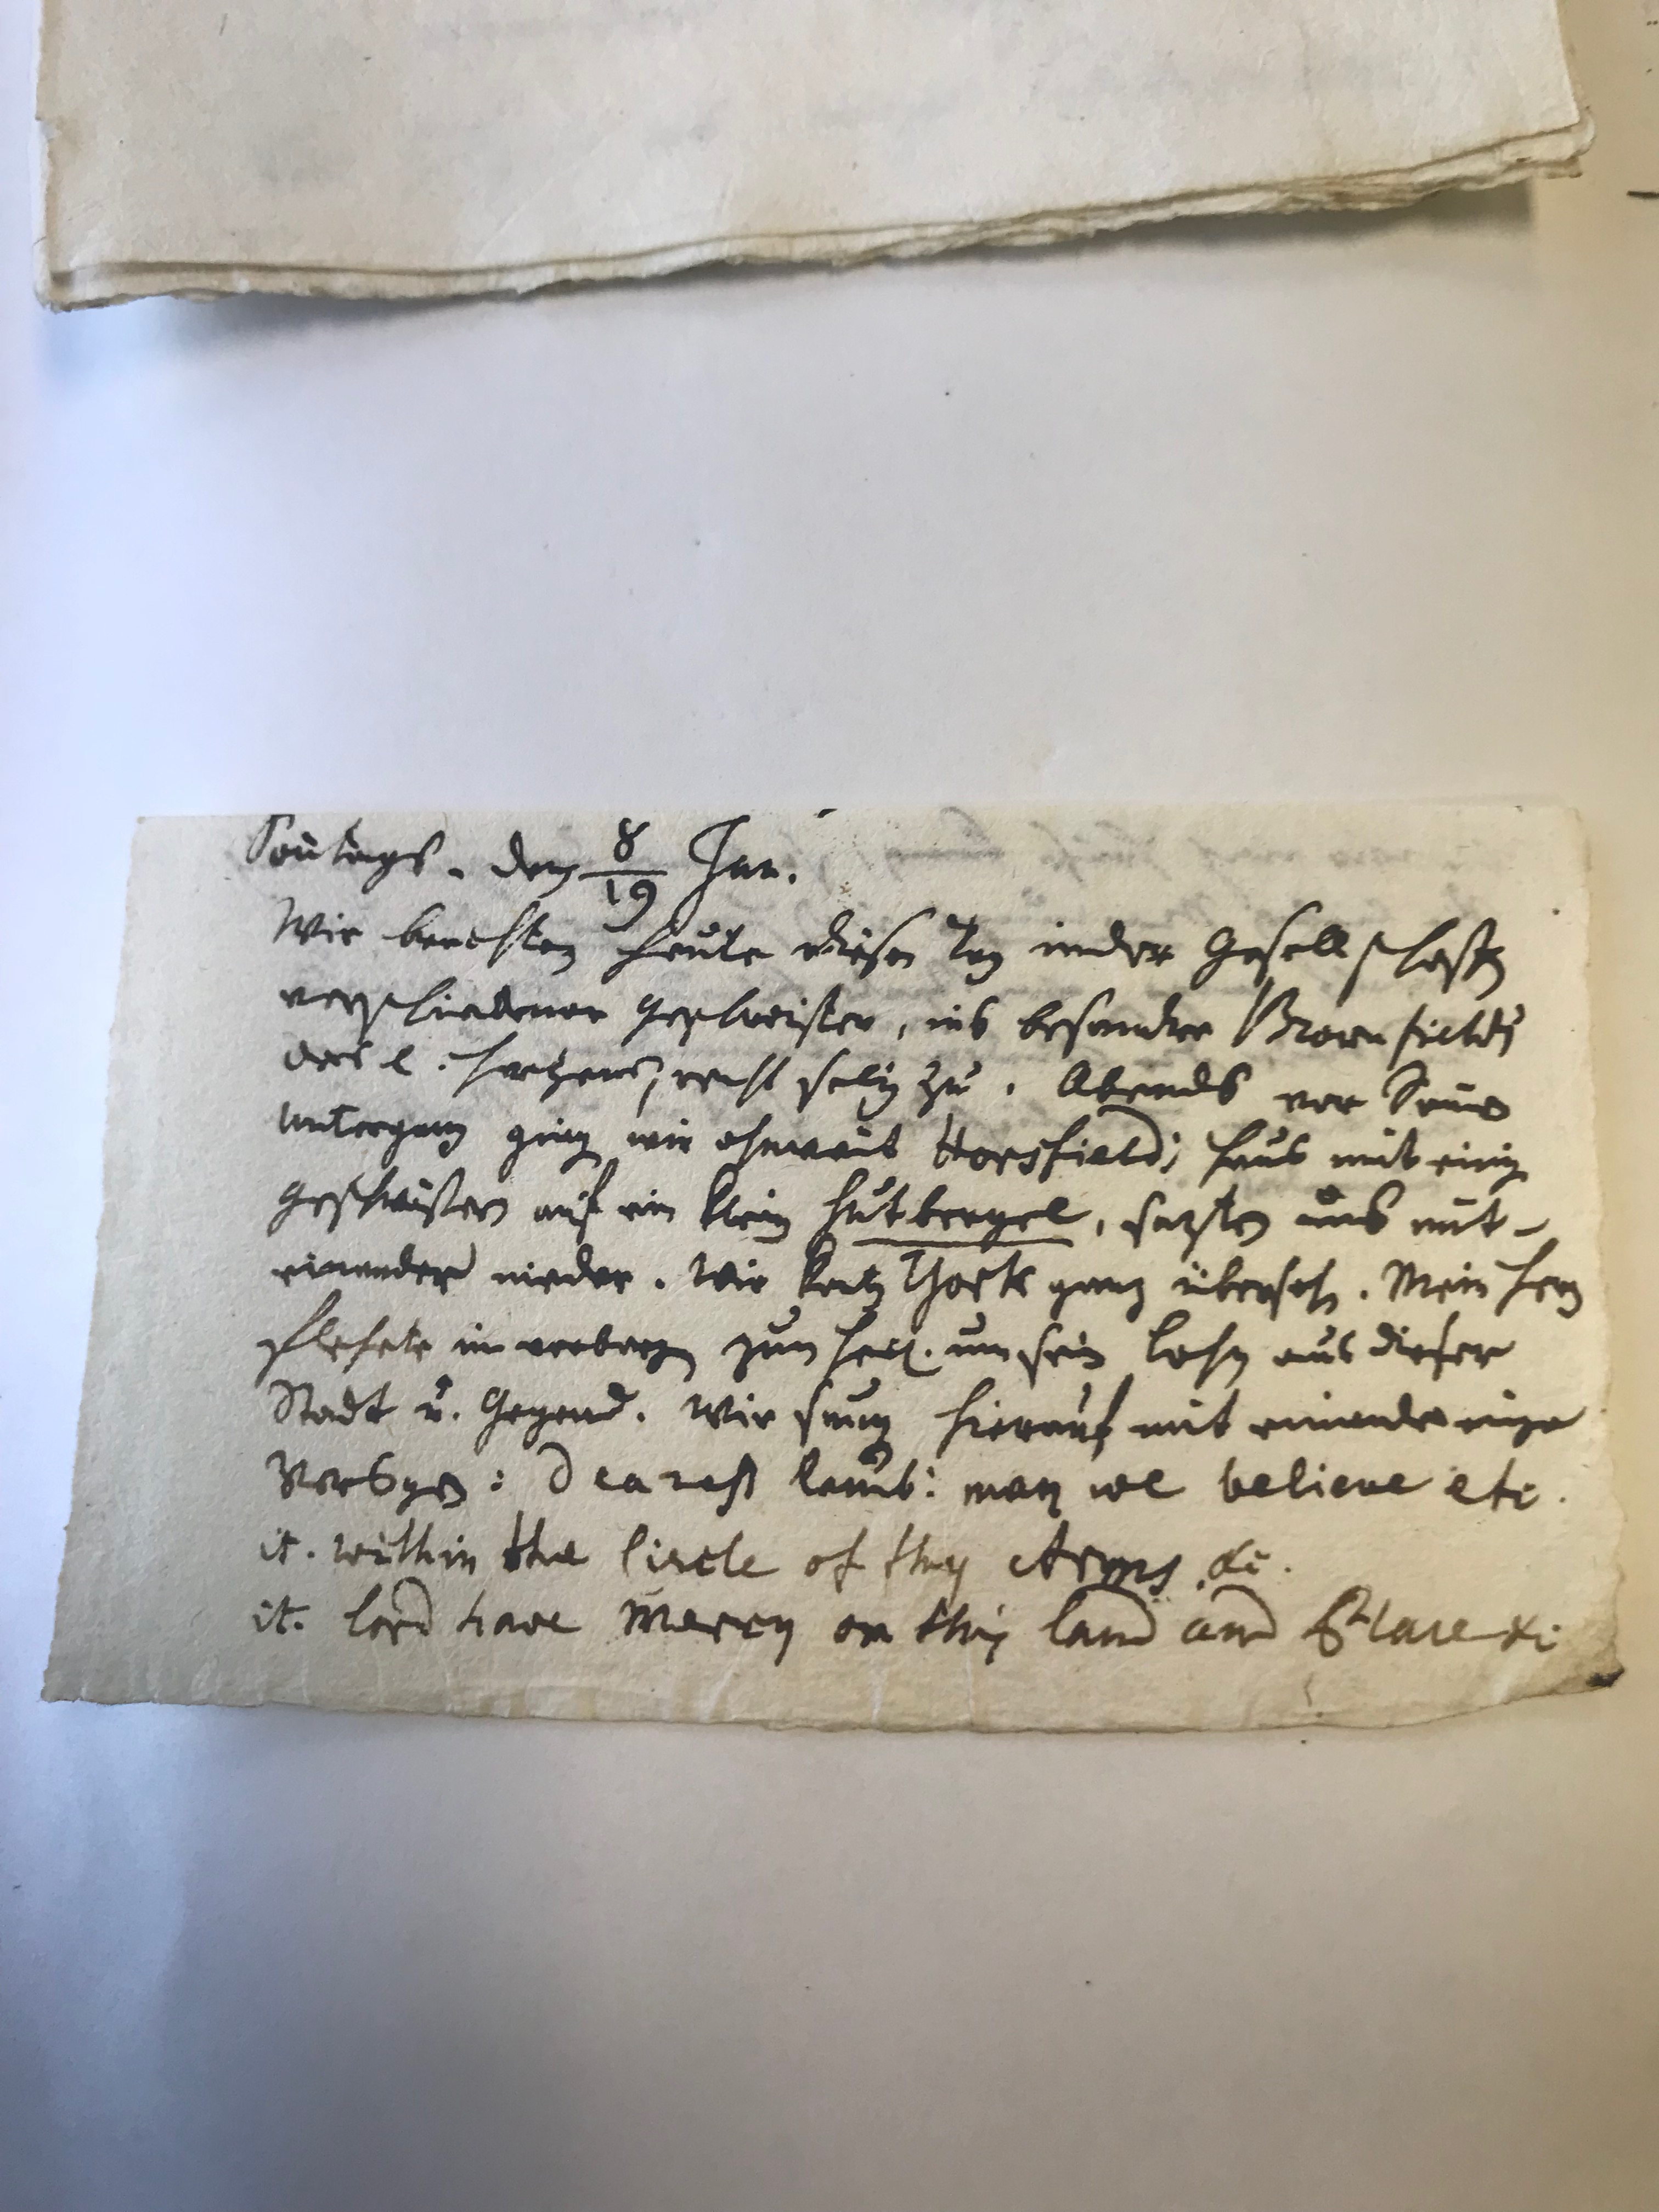 Sontags. den 8/19 Jan.
Wir brachten heute diesen Tag in der Gesellschafft
verschiedener Geschwister, ins besondre Brownfields
des l. Hertzens, recht selig zu. Abends vor Sonn
Untergang ging wir ohnweit Horsfields Haus mit einig
Geschwistern auf ein klein Hutbergel, sazten uns mit-
einander nieder. Wir kontn York ganz übersehn. Mein Herz
flehete im verborgn zum Heil. um sein Lohn aus dieser
Stadt u. Gegend. Wir sung hierauf mit einander einige
Versgen: Dearest lamb: may we believe etc.
it. within the Circle of thy Arms &c.
it. lord have Mercy on this land and Place &c